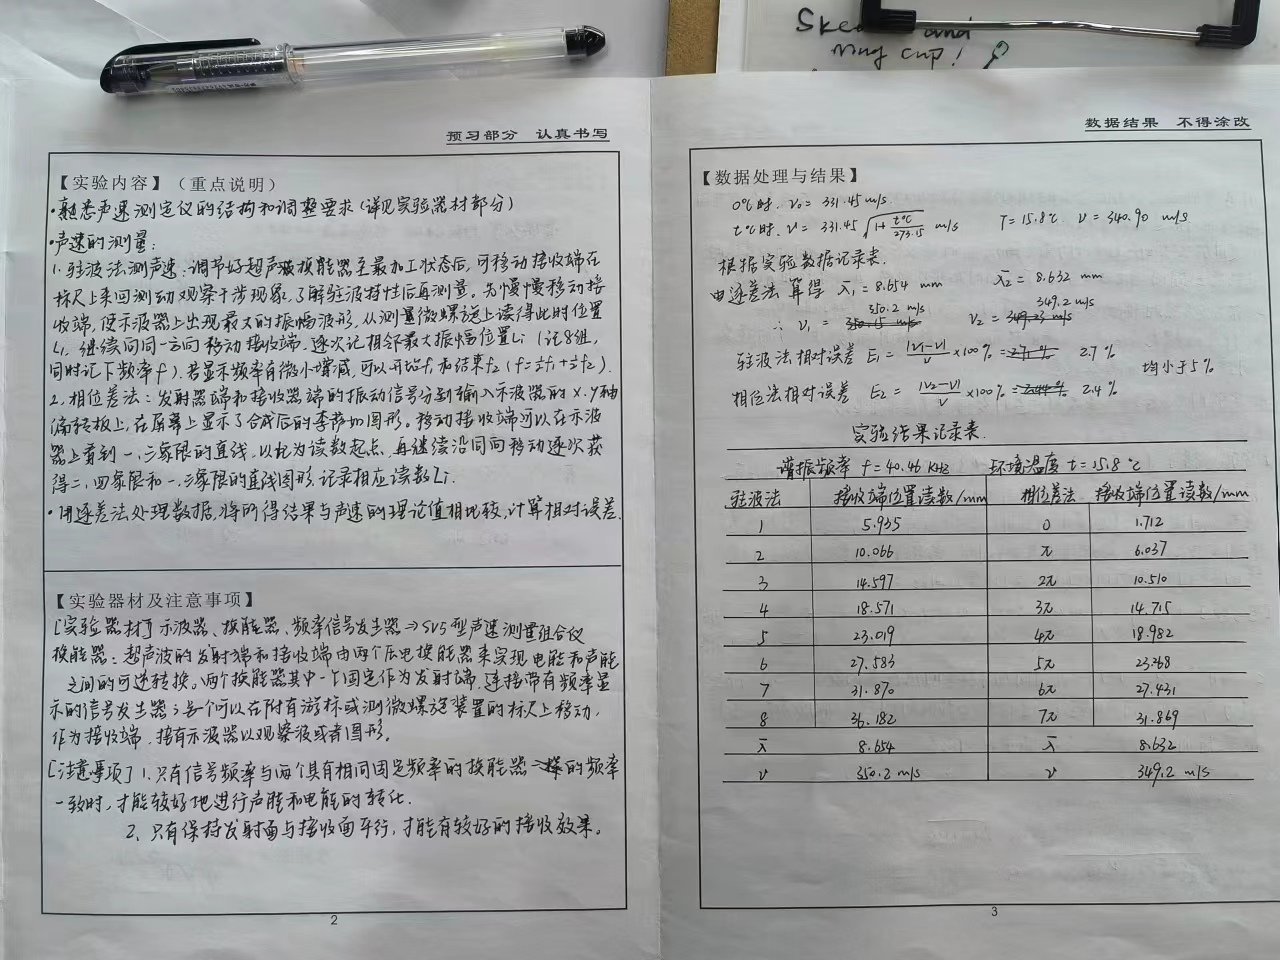 and
mug cup!
预习部分 认真书写
【实验内容】（重点说明）
·熟悉声速测定仪的结构和调整要求(详见实验器材部分)
·声速的测量:
1. 驻波法测声速:调节好超声波换能器至最加工状态后,可移动接收端在
标尺上来回测动观察干涉现象,了解驻波特性后再测量。先慢慢移动接
收端,使示波器上出现最大的振幅波形,从测量微螺旋上读得此时位置
L₁.继续同同一方向移动接收端.逐次记相邻最大振幅位置Li (记8组,
同时记下频率f).若显示频率有微小增减,可以开始f₁和结束f₂(f=½f₁+½f₂).
2.相位差法:发射器端和接收器端的振动信号分别输入示波器的x.y轴
偏转板上,在屏幕上显示了合成后的李萨如图形。移动接收端可以在示波
器上看到一.三象限的直线,以此为读数起点,再继续沿同向移动逐次获
得二,四象限和一.三象限的直线图形.记录相应读数Li.
·用逐差法处理数据,将所得结果与声速的理论值相比较,计算相对误差.
【实验器材及注意事项】
[实验器材]示波器、换能器、频率信号发生器→SV5型声速测量组合仪
换能器:超声波的发射端和接收端由两个压电换能器来实现电能和声能
之间的可逆转换。两个换能器其中一个固定作为发射端.连接带有频率显
示的信号发生器;另一个可以在附有游标或测微螺旋装置的标尺上移动,
作为接收端.接有示波器以观察波或者图形。
[注意事项]1.只有信号频率与两个具有相同固定频率的换能器的频率
一致时,才能较好地进行声能和电能的转化.
2.只有保持发射面与接收面平行,才能有较好的接收效果。
2
数据结果 不得涂改
【数据处理与结果】
0℃时. v₀= 331.45 m/s.
t℃时. v= 331.45 √(1+ t℃/273.15) m/s T=15.8℃ v=340.90 m/s
根据实验数据记录表.
由逐差法算得 λ̄₁= 8.654 mm λ̄₂= 8.632 mm
∴ v₁ = 350.2 m/s v₂ = 349.2 m/s
驻波法相对误差 E₁= |v₁-v|/v ×100%= 2.7 % 均小于5%
相位法相对误差 E₂= |v₂-v|/v ×100%= 2.4 %
实验结果记录表.
谐振频率 f=40.46 KHz 环境温度 t=15.8℃
驻波法 接收端位置读数/mm 相位差法 接收端位置读数/mm
1 5.935 0 1.712
2 10.066 π 6.037
3 14.597 2π 10.510
4 18.571 3π 14.715
5 23.019 4π 18.982
6 27.583 5π 23.268
7 31.870 6π 27.431
8 36.182 7π 31.869
λ̄ 8.654 λ̄ 8.632
v 350.2 m/s v 349.2 m/s
3